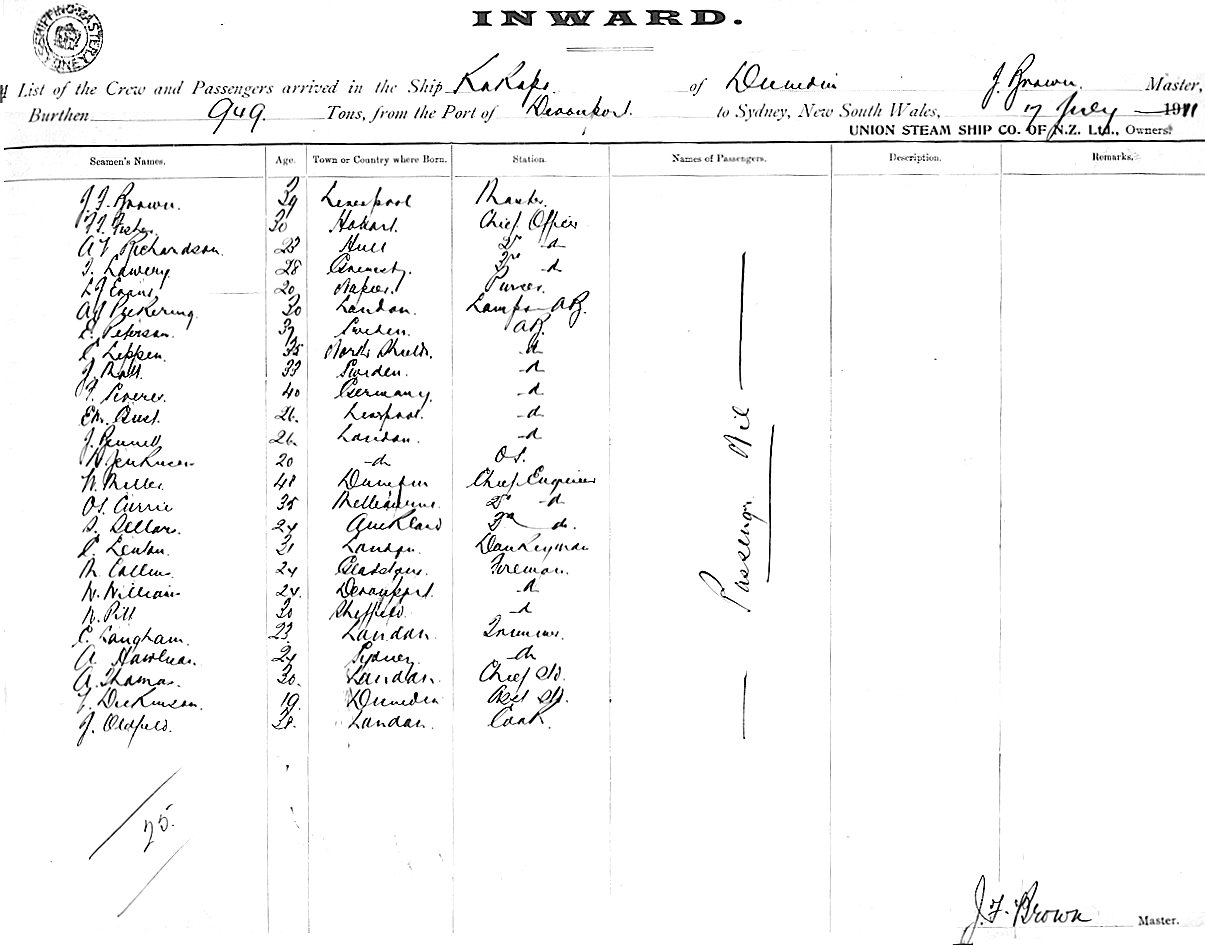 SHIPPING MASTER SYDNEY
INWARD.
List of the Crew and Passengers arrived in the Ship Kakapo of Dunedin J. Brown. Master,
Burthen 949. Tons, from the Port of Devonport. to Sydney, New South Wales, 17 July 1911
UNION STEAM SHIP CO. OF N.Z. Ltd., Owners.
Seamen's Names. Age. Town or Country where Born. Station. Names of Passengers. Description. Remarks.
J F Brown. 39 Liverpool Master.
Fisher. 30 Hobart. Chief Officer
A Richardson 23 Hull 2nd d
Lowery. 28 Grimsby. 3rd d
L J Evans 20 Napier. Purser.
A J Pickering. 30 London. Lamps AB.
Peterson. 37 Sweden. AB.
Leppen 35 North Shields. d
J. 33 Sweden. d
F. 40 Germany. d
Bust. 26. Liverpool. d
J. Bennett 26 London. d
Jenkinson 20 do OS.
W. Miller. 48 Dunedin Chief Engineer
Currie 35 Melbourne 2nd d
Sellars. 24 Auckland 3rd do.
Lenton. 31 London. Donkeyman
M. Collins 24 Gladstone. Fireman.
W. Williams 24. Devonport. d
W. Pitt 30 Sheffield. d
C. Langham. 23 London. Trimmer.
A. 24 Sydney. do
A. Thomas. 30. London. Chief Std.
Dickinson. 19. Dunedin Asst Std.
J. Oldfield. London. Cook.
Passengers Nil
25.
J. F. Brown Master.